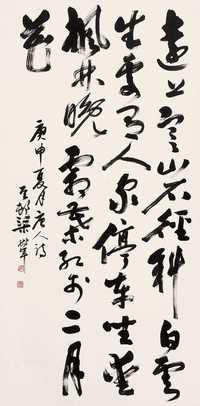 遠上寒山石徑斜白雲
生處有人家停車坐愛
楓林晚霜葉紅於二月
花
庚申夏月唐人詩
梁